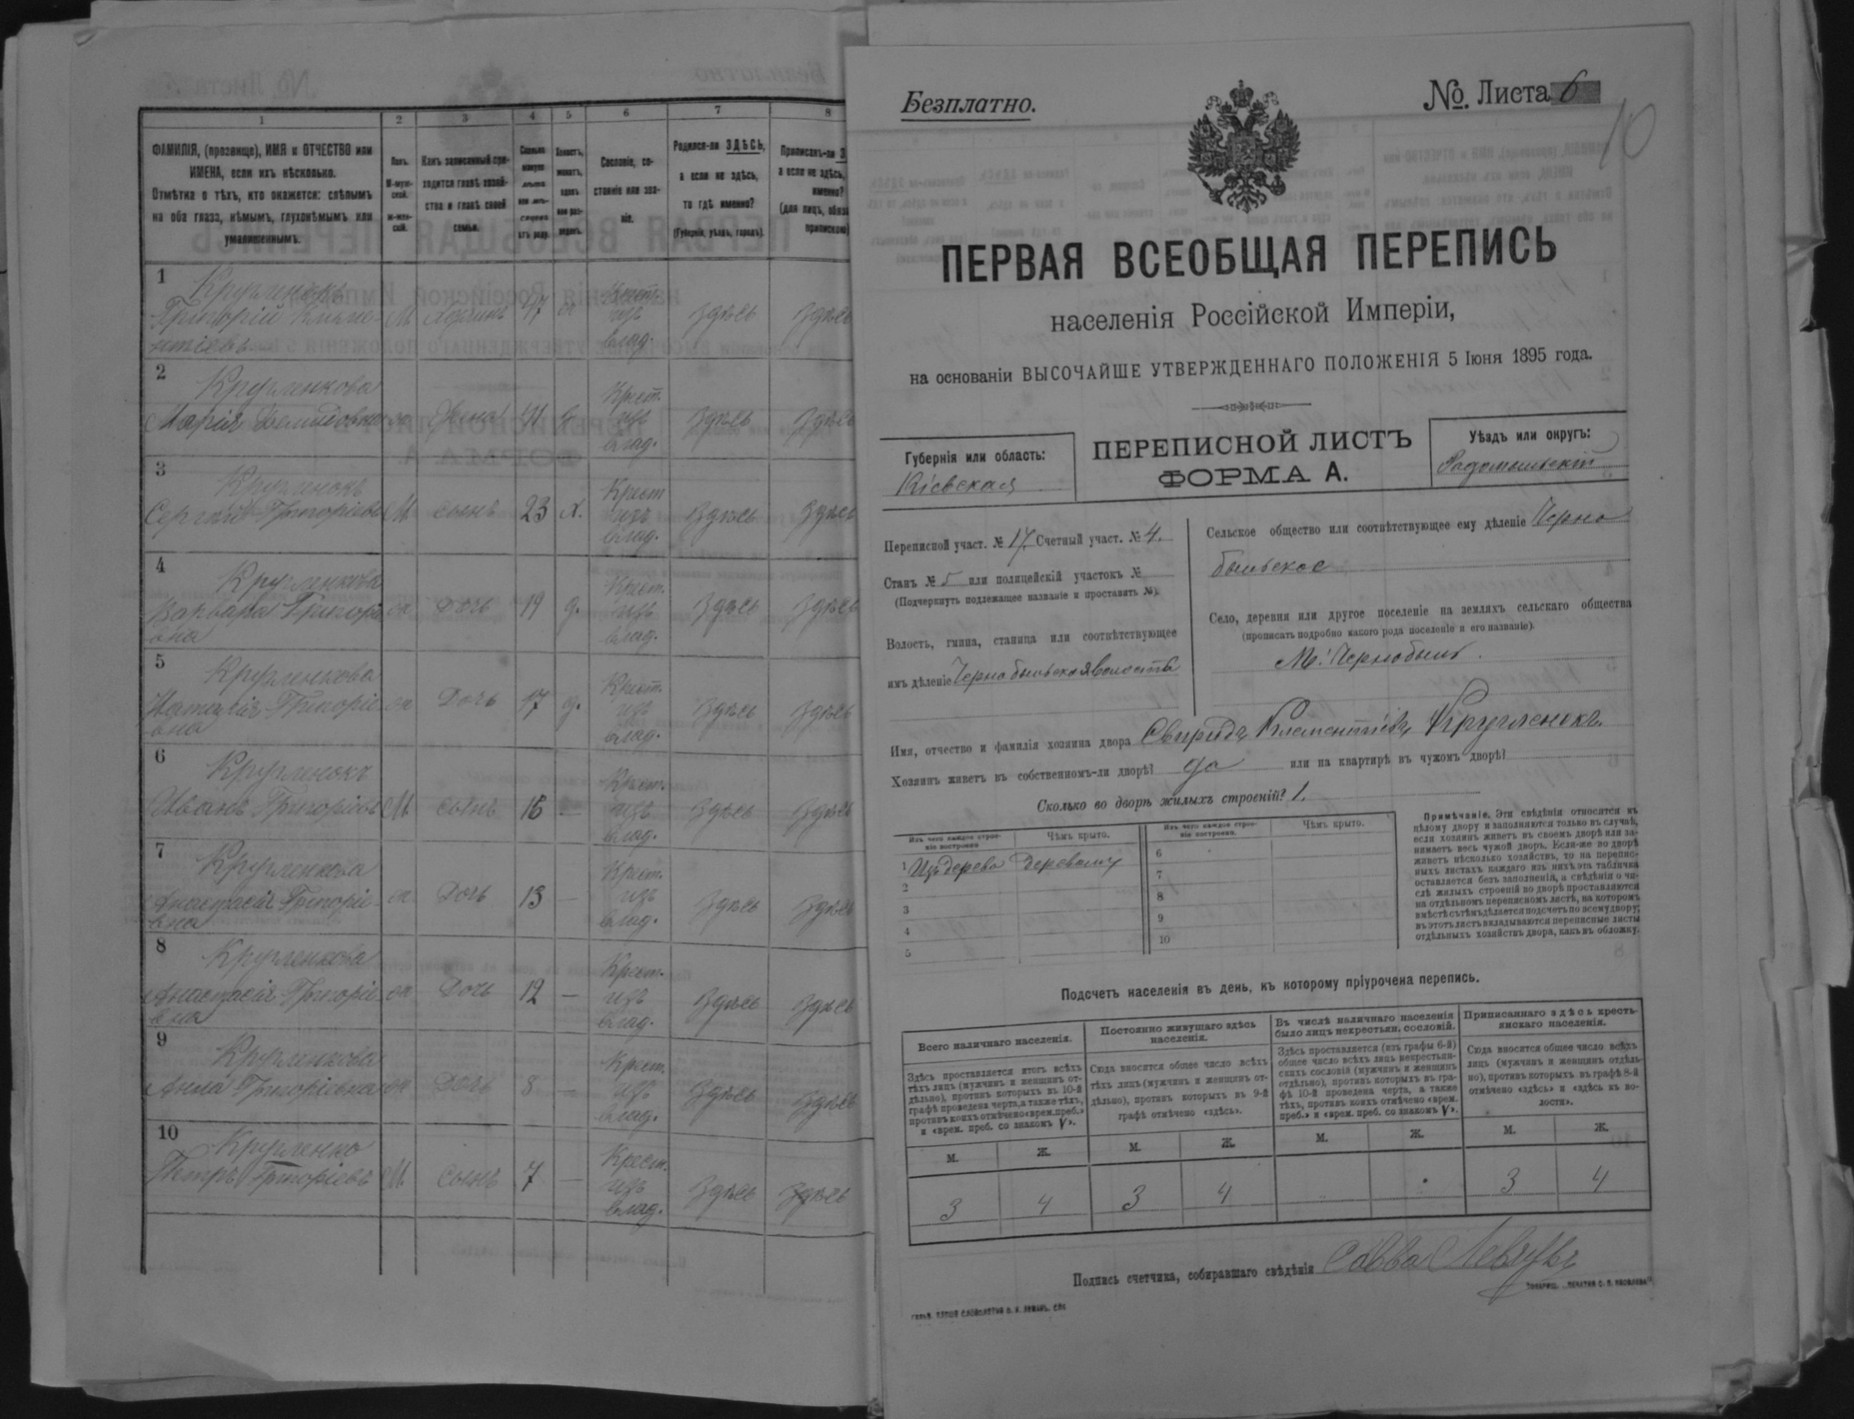 1 2 3 4 5 6 7 8
ФАМИЛІЯ, (прозвище), ИМЯ и ОТЧЕСТВО или
ИМЕНА, если ихъ нѣсколько.
Отмѣтка о тѣхъ, кто окажется: слѣпымъ
на оба глаза, нѣмымъ, глухонѣмымъ или
умалишеннымъ.
Полъ.
М-мужской.
Ж-женскій.
Какъ записанный приходится главѣ хозяйства и главѣ своей
семьи.
Сословіе, состояніе или званіе.
Родился-ли ЗДѢСЬ,
а если не здѣсь,
то гдѣ именно?
(Губернія, уѣздъ, городъ).
Приписанъ-ли
а если не здѣсь,
именно?
(для лицъ,
1
Кругленокъ
Григорій М Хозяинъ 47 Крест. изъ влад. Здѣсь Здѣсь
2
Кругленкова
Марія Жена 41 Крест. изъ влад. Здѣсь Здѣсь
3
Кругленокъ
Сергѣй Григорьевъ М сынъ 23 х. Крест. изъ влад. Здѣсь Здѣсь
4
Кругленкова
Варвара Дочь 19 д. Крест. изъ влад. Здѣсь Здѣсь
5
Кругленкова
Дочь 17 д. Крест. изъ влад. Здѣсь Здѣсь
6
Кругленокъ
Иванъ Григоріевъ М сынъ — Крест. изъ влад. Здѣсь Здѣсь
7
Кругленкова
Анастасія Григоріевна Дочь 13 — Крест. изъ влад. Здѣсь Здѣсь
8
Кругленкова
Анастасія Григоріевна Дочь 12 — Крест. изъ влад. Здѣсь Здѣсь
9
Кругленкова
Анна Григоріевна Дочь 8 — Крест. изъ влад. Здѣсь Здѣсь
10
Кругленко
Петръ Григоріевъ М сынъ 7 — Крест. изъ влад. Здѣсь Здѣсь
Безплатно.
№ Листа 6
10
ПЕРВАЯ ВСЕОБЩАЯ ПЕРЕПИСЬ
населенія Россійской Имперіи,
на основаніи ВЫСОЧАЙШЕ УТВЕРЖДЕННАГО ПОЛОЖЕНІЯ 5 Іюня 1895 года.
Губернія или область:
Кіевская
ПЕРЕПИСНОЙ ЛИСТЪ
ФОРМА А.
Уѣздъ или округъ:
Радомысльскій
Переписной участ. № 17. Счетный участ. № 4.
Станъ № 5 или полицейскій участокъ №
(Подчеркнуть подлежащее названіе и проставить №).
Волость, гмина, станица или соотвѣтствующее
имъ дѣленіе Чернобыльская волость
Сельское общество или соотвѣтствующее ему дѣленіе Черно
быльское
Село, деревня или другое поселеніе на земляхъ сельскаго общества
(прописать подробно какого рода поселеніе и его названіе)
М. Чернобыль.
Имя, отчество и фамилія хозяина двора Свиридъ Климентіевъ Кругленокъ.
Хозяинъ живетъ въ собственномъ-ли дворѣ? да или на квартирѣ въ чужомъ дворѣ?
Сколько во дворѣ жилыхъ строеній? 1.
Изъ чего каждое строеніе построено
Чѣмъ крыто.
Изъ чего каждое строеніе построено.
Чѣмъ крыто.
1 Изъ дерева Деревомъ
2
3
4
5
6
7
8
9
10
Примѣчаніе. Эти свѣдѣнія относятся къ
цѣлому двору и заполняются только въ случаѣ,
если хозяинъ живетъ въ своемъ дворѣ или занимаетъ весь чужой дворъ. Если-же во дворѣ
живетъ нѣсколько хозяйствъ, то на переписныхъ листахъ каждаго изъ нихъ эта табличка
оставляется безъ заполненія, а свѣдѣнія о числѣ жилыхъ строеній во дворѣ проставляются
на отдѣльномъ переписномъ листѣ, на которомъ
вмѣстѣ съ тѣмъ дѣлается подсчетъ по всему двору;
въ этотъ листъ вкладываются переписные листы
отдѣльныхъ хозяйствъ двора, какъ въ обложку.
Подсчетъ населенія въ день, къ которому пріурочена перепись.
Всего наличнаго населенія.
Здѣсь проставляется итогъ всѣхъ
тѣхъ лицъ (мужчинъ и женщинъ отдѣльно), противъ которыхъ въ 10-й
графѣ проведена черта, а также тѣхъ,
противъ коихъ отмѣчено «врем. преб.»
и «врем. преб. со знакомъ V».
Постоянно живущаго здѣсь
населенія.
Сюда вносится общее число всѣхъ
тѣхъ лицъ (мужчинъ и женщинъ отдѣльно), противъ которыхъ въ 9-й
графѣ отмѣчено «здѣсь».
Въ числѣ наличнаго населенія
было лицъ некрестьян. сословій.
Здѣсь проставляется (изъ графы 6-й)
общее число всѣхъ лицъ некрестьянскихъ сословій (мужчинъ и женщинъ
отдѣльно), противъ которыхъ въ графѣ 10-й проведена черта, а также
тѣхъ, противъ коихъ отмѣчено «врем.
преб.» и «врем. преб. со знакомъ V».
Приписаннаго здѣсь крестьянскаго населенія.
Сюда вносится общее число всѣхъ
лицъ (мужчинъ и женщинъ отдѣльно), противъ которыхъ въ графѣ 8-й
отмѣчено «здѣсь» и «здѣсь къ волости».
М. Ж. М. Ж. М. Ж. М. Ж.
3 4 3 4 3 4
Подпись счетчика, собиравшаго свѣдѣнія Савва Левчукъ